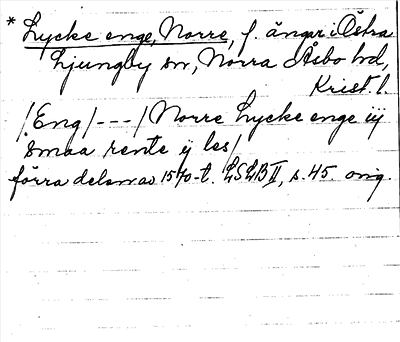 * Lycke enge, Norre, f. ängar i Östra
Ljungby sn, Norra Åsbo hd,
Krist. l.
/Eng/ --- / Norre Lycke enge iij
smaa rente ij les/
förra delen av 1570-t. LSLB II, s. 45. orig.